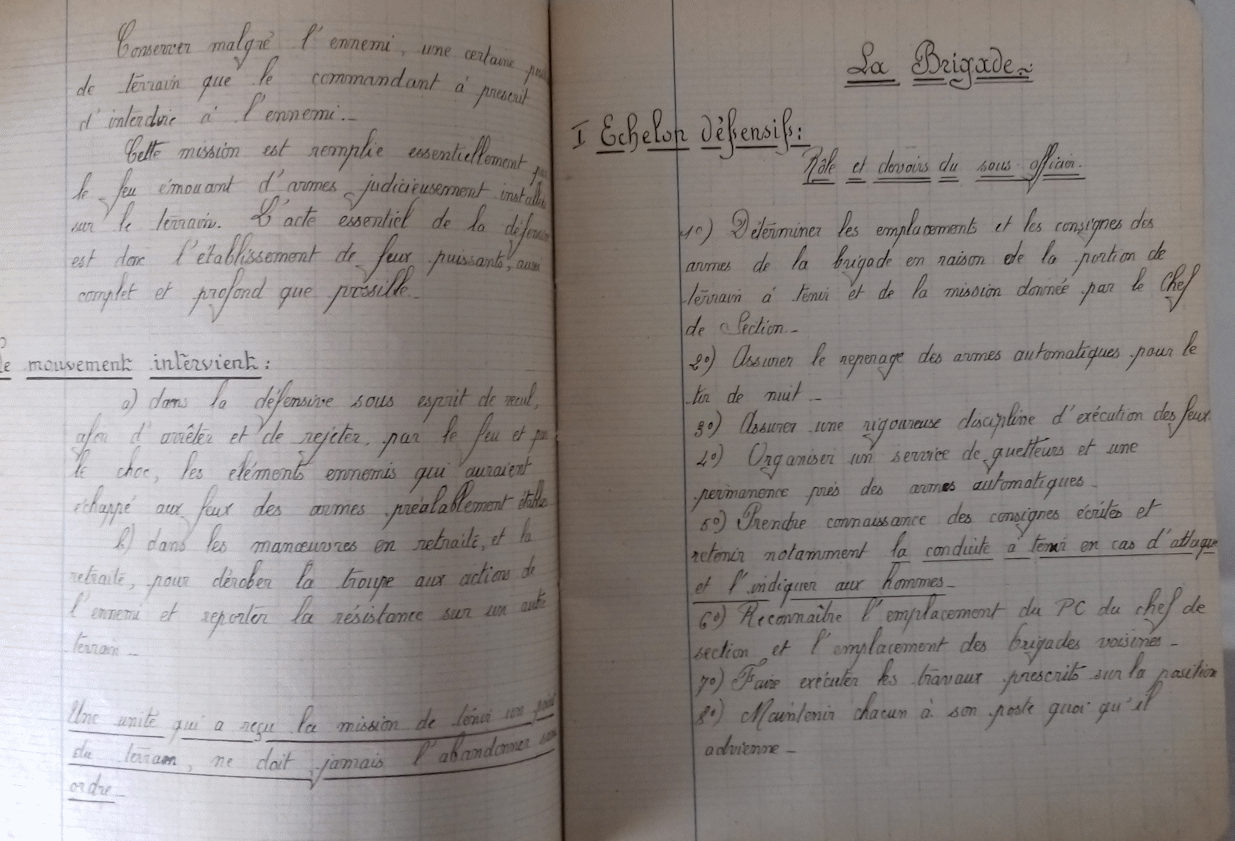 Conserver malgré l'ennemi, une certaine
de terrain que le commandant à prescrit
d'interdire à l'ennemi.-
Cette mission est remplie essentiellement
le feu émouant d'armes judicieusement
sur le terrain. L'acte essentiel de la
est donc l'établissement de feux puissants,
complet et profond que possible.-
mouvement intervient :
a) dans la défensive sous esprit de recul,
afin d'arrêter et de rejeter, par le feu et
le choc, les eléments ennemis qui auraient
échappé aux feux des armes préalablement
b) dans les manœuvres en retraite, et la
retraite, pour dérober la troupe aux actions de
l'ennemi et reporter la résistance sur un autre
terrain.-
Une unité qui a reçu la mission de tenir un
du terrain, ne doit jamais l'abandonner
ordre.-
La Brigade.-
I Echelon défensif :
Rôle et devoirs du sous officier.
1°) Déterminer les emplacements et les consignes des
armes de la brigade en raison de la portion de
terrain à tenir et de la mission donnée par le Chef
de Section.-
2°) Assurer le reperage des armes automatiques pour le
tir de nuit.-
3°) Assurer une rigoureuse discipline d'exécution des feux.
4°) Organiser un service de guetteurs et une
permanence près des armes automatiques.-
5°) Prendre connaissance des consignes écrites et
retenir notamment la conduite à tenir en cas d'attaque
et l'indiquer aux hommes.-
6°) Reconnaître l'emplacement du PC du chef de
section et l'emplacement des brigades voisines.-
7°) Faire exécuter les travaux prescrits sur la position
8°) Maintenir chacun à son poste quoi qu'il
advienne.-